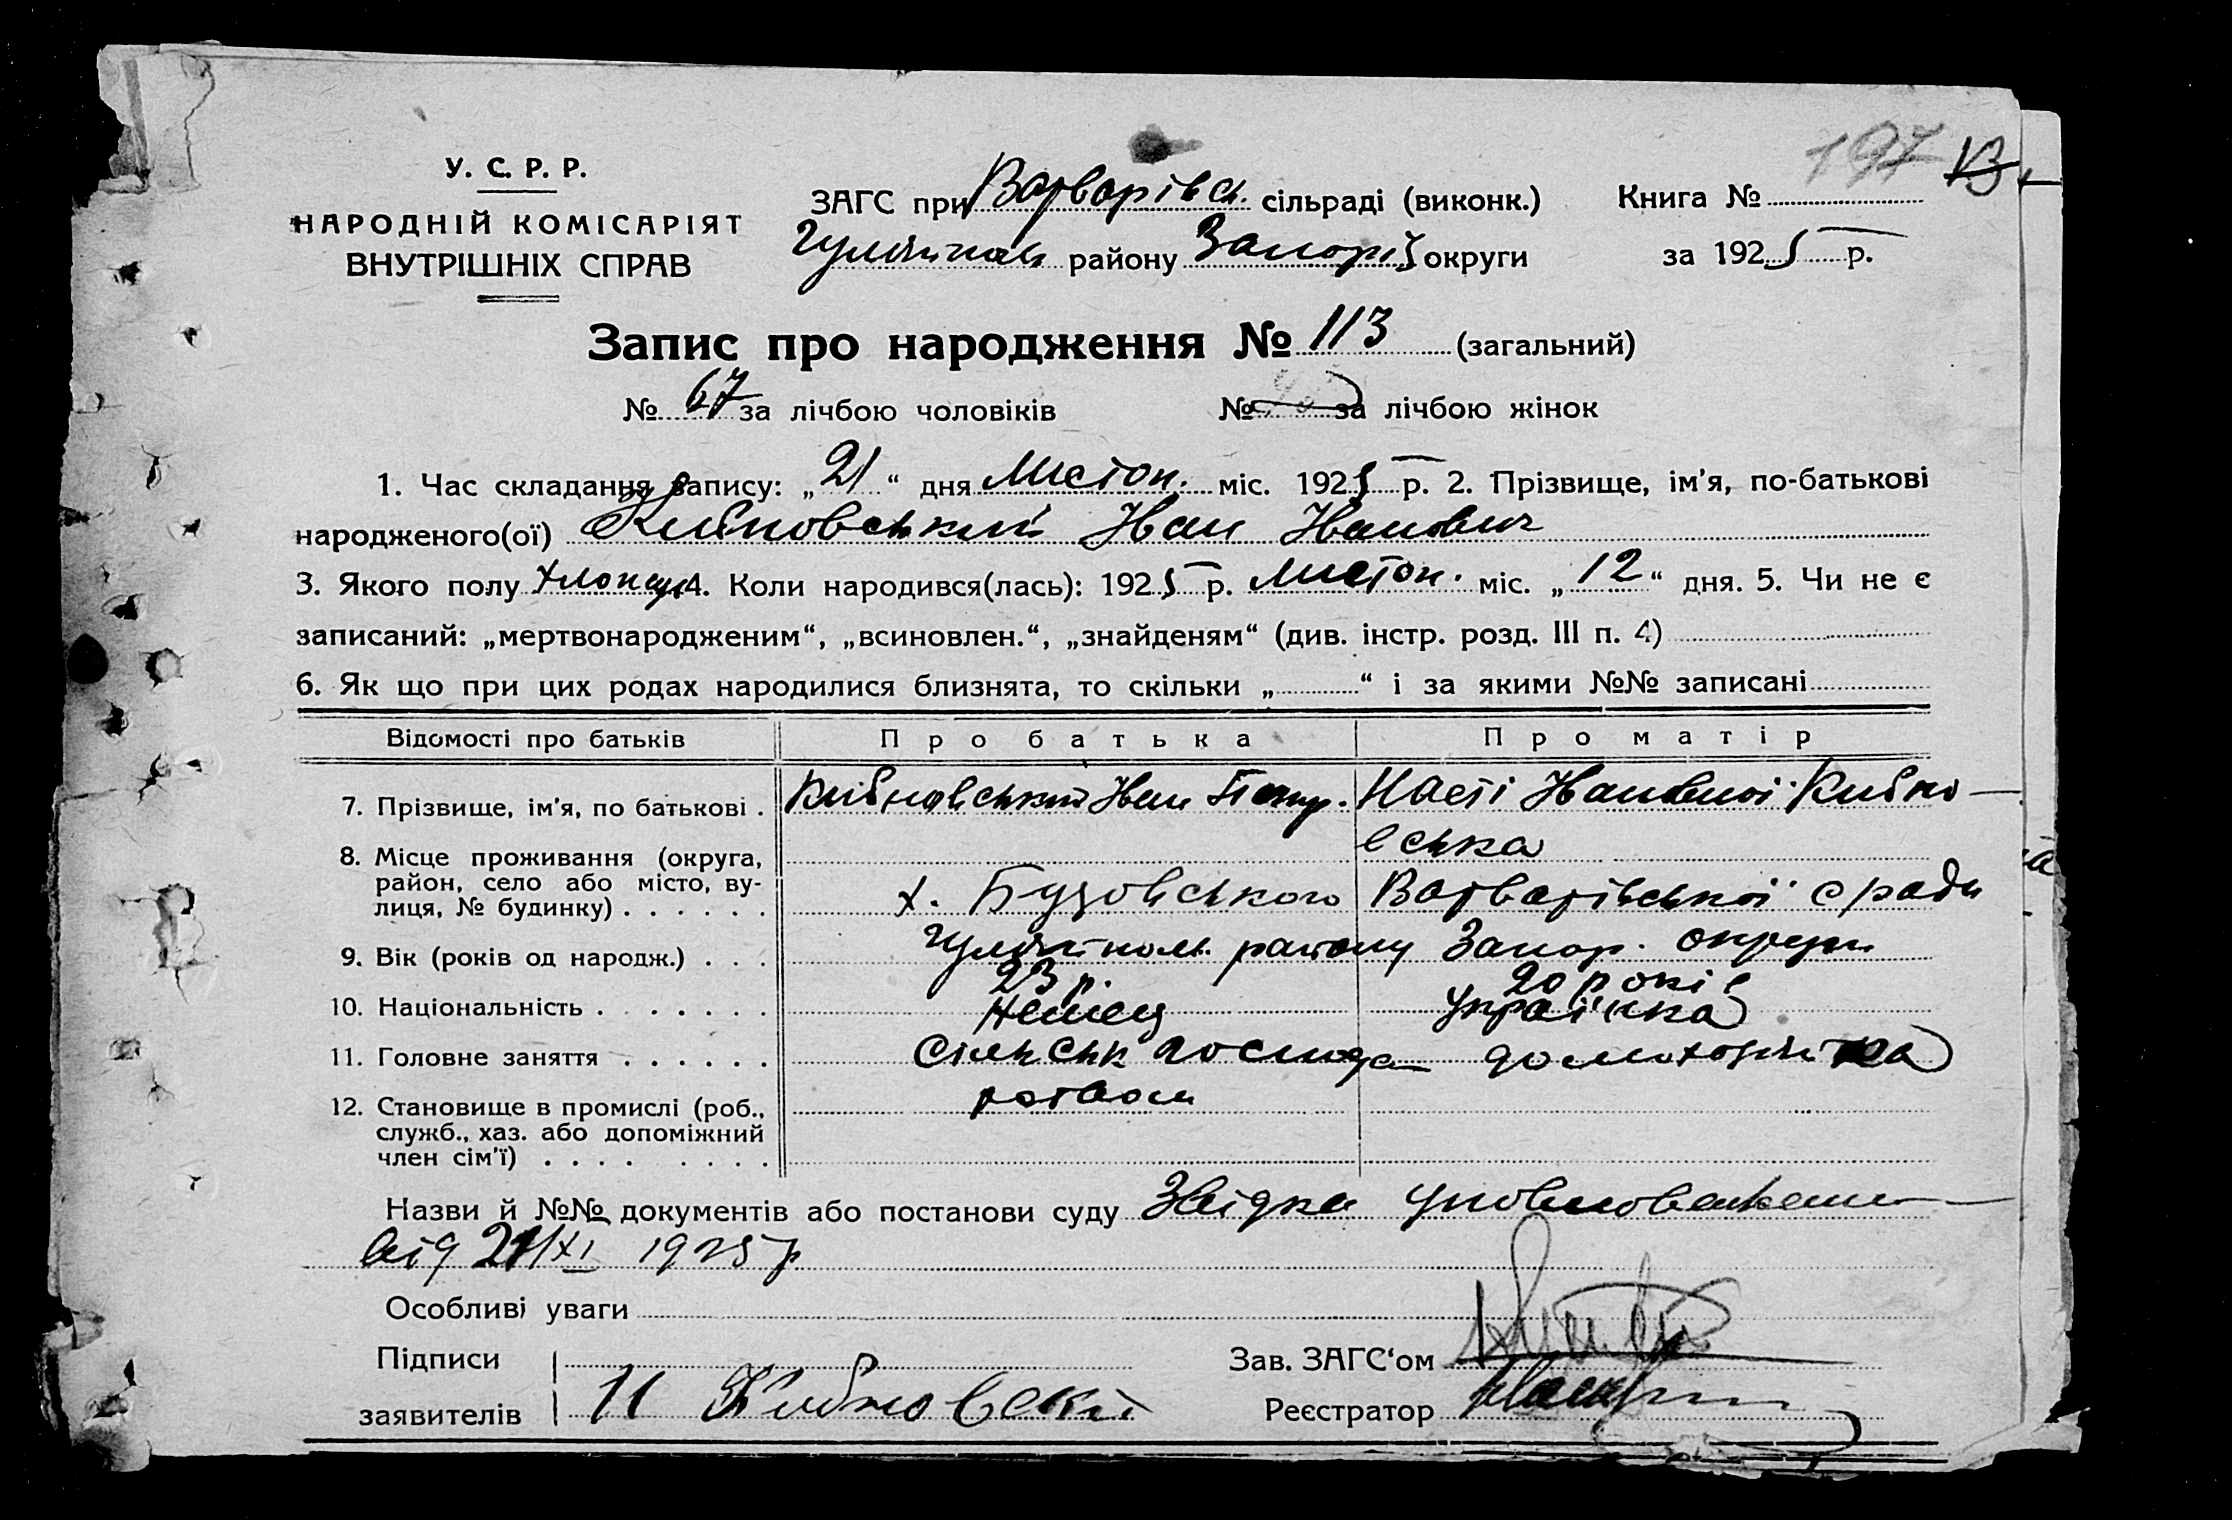 197 13
У. С. Р. Р.
НАРОДНІЙ КОМІСАРІЯТ
ВНУТРІШНІХ СПРАВ
ЗАГС при Варварівсь. сільраді (виконк.)
Гуляйпол району Запоріз округи
Книга №
за 1925 р.
Запис про народження № 113 (загальний)
№ 67 за лічбою чоловіків № за лічбою жінок
1. Час складання запису: „21“ дня Листоп. міс. 1925 р. 2. Прізвище, ім’я, по-батькові
народженого(ої) Кибновський Иван Иванович
3. Якого полу хлопець 4. Коли народився(лась): 1925 р. Листоп. міс. „12“ дня. 5. Чи не є
записаний: „мертвонародженим“, „всиновлен.“, „знайденям“ (див. інстр. розд. III п. 4)
6. Як що при цих родах народилися близнята, то скільки „ “ і за якими №№ записані
Відомості про батьків Про батька Про матір
7. Прізвище, ім’я, по батькові . Кибновський Иван Насті Ивановної Кибно
вська
8. Місце проживання (округа,
район, село або місто, ву-
лиця, № будинку) . . . . . .
х. Бузовського Варварівської с ради
Гуляйпол. району Запор. округи
9. Вік (років од народж.) . . . 23 р. 20 років
10. Національність . . . . . . . Немец Українка
11. Головне заняття . . . . . . Сільськ господа домохозяйка
рством
12. Становище в промислі (роб.,
служб., хаз. або допоміжний
член сім’ї) . . . . . . . .
Назви й №№ документів або постанови суду Звідка уповноваженим
від 21/XI 1925 р
Особливі уваги
Підписи
заявителів И Кибновский
Зав. ЗАГС‘ом
Реєстратор